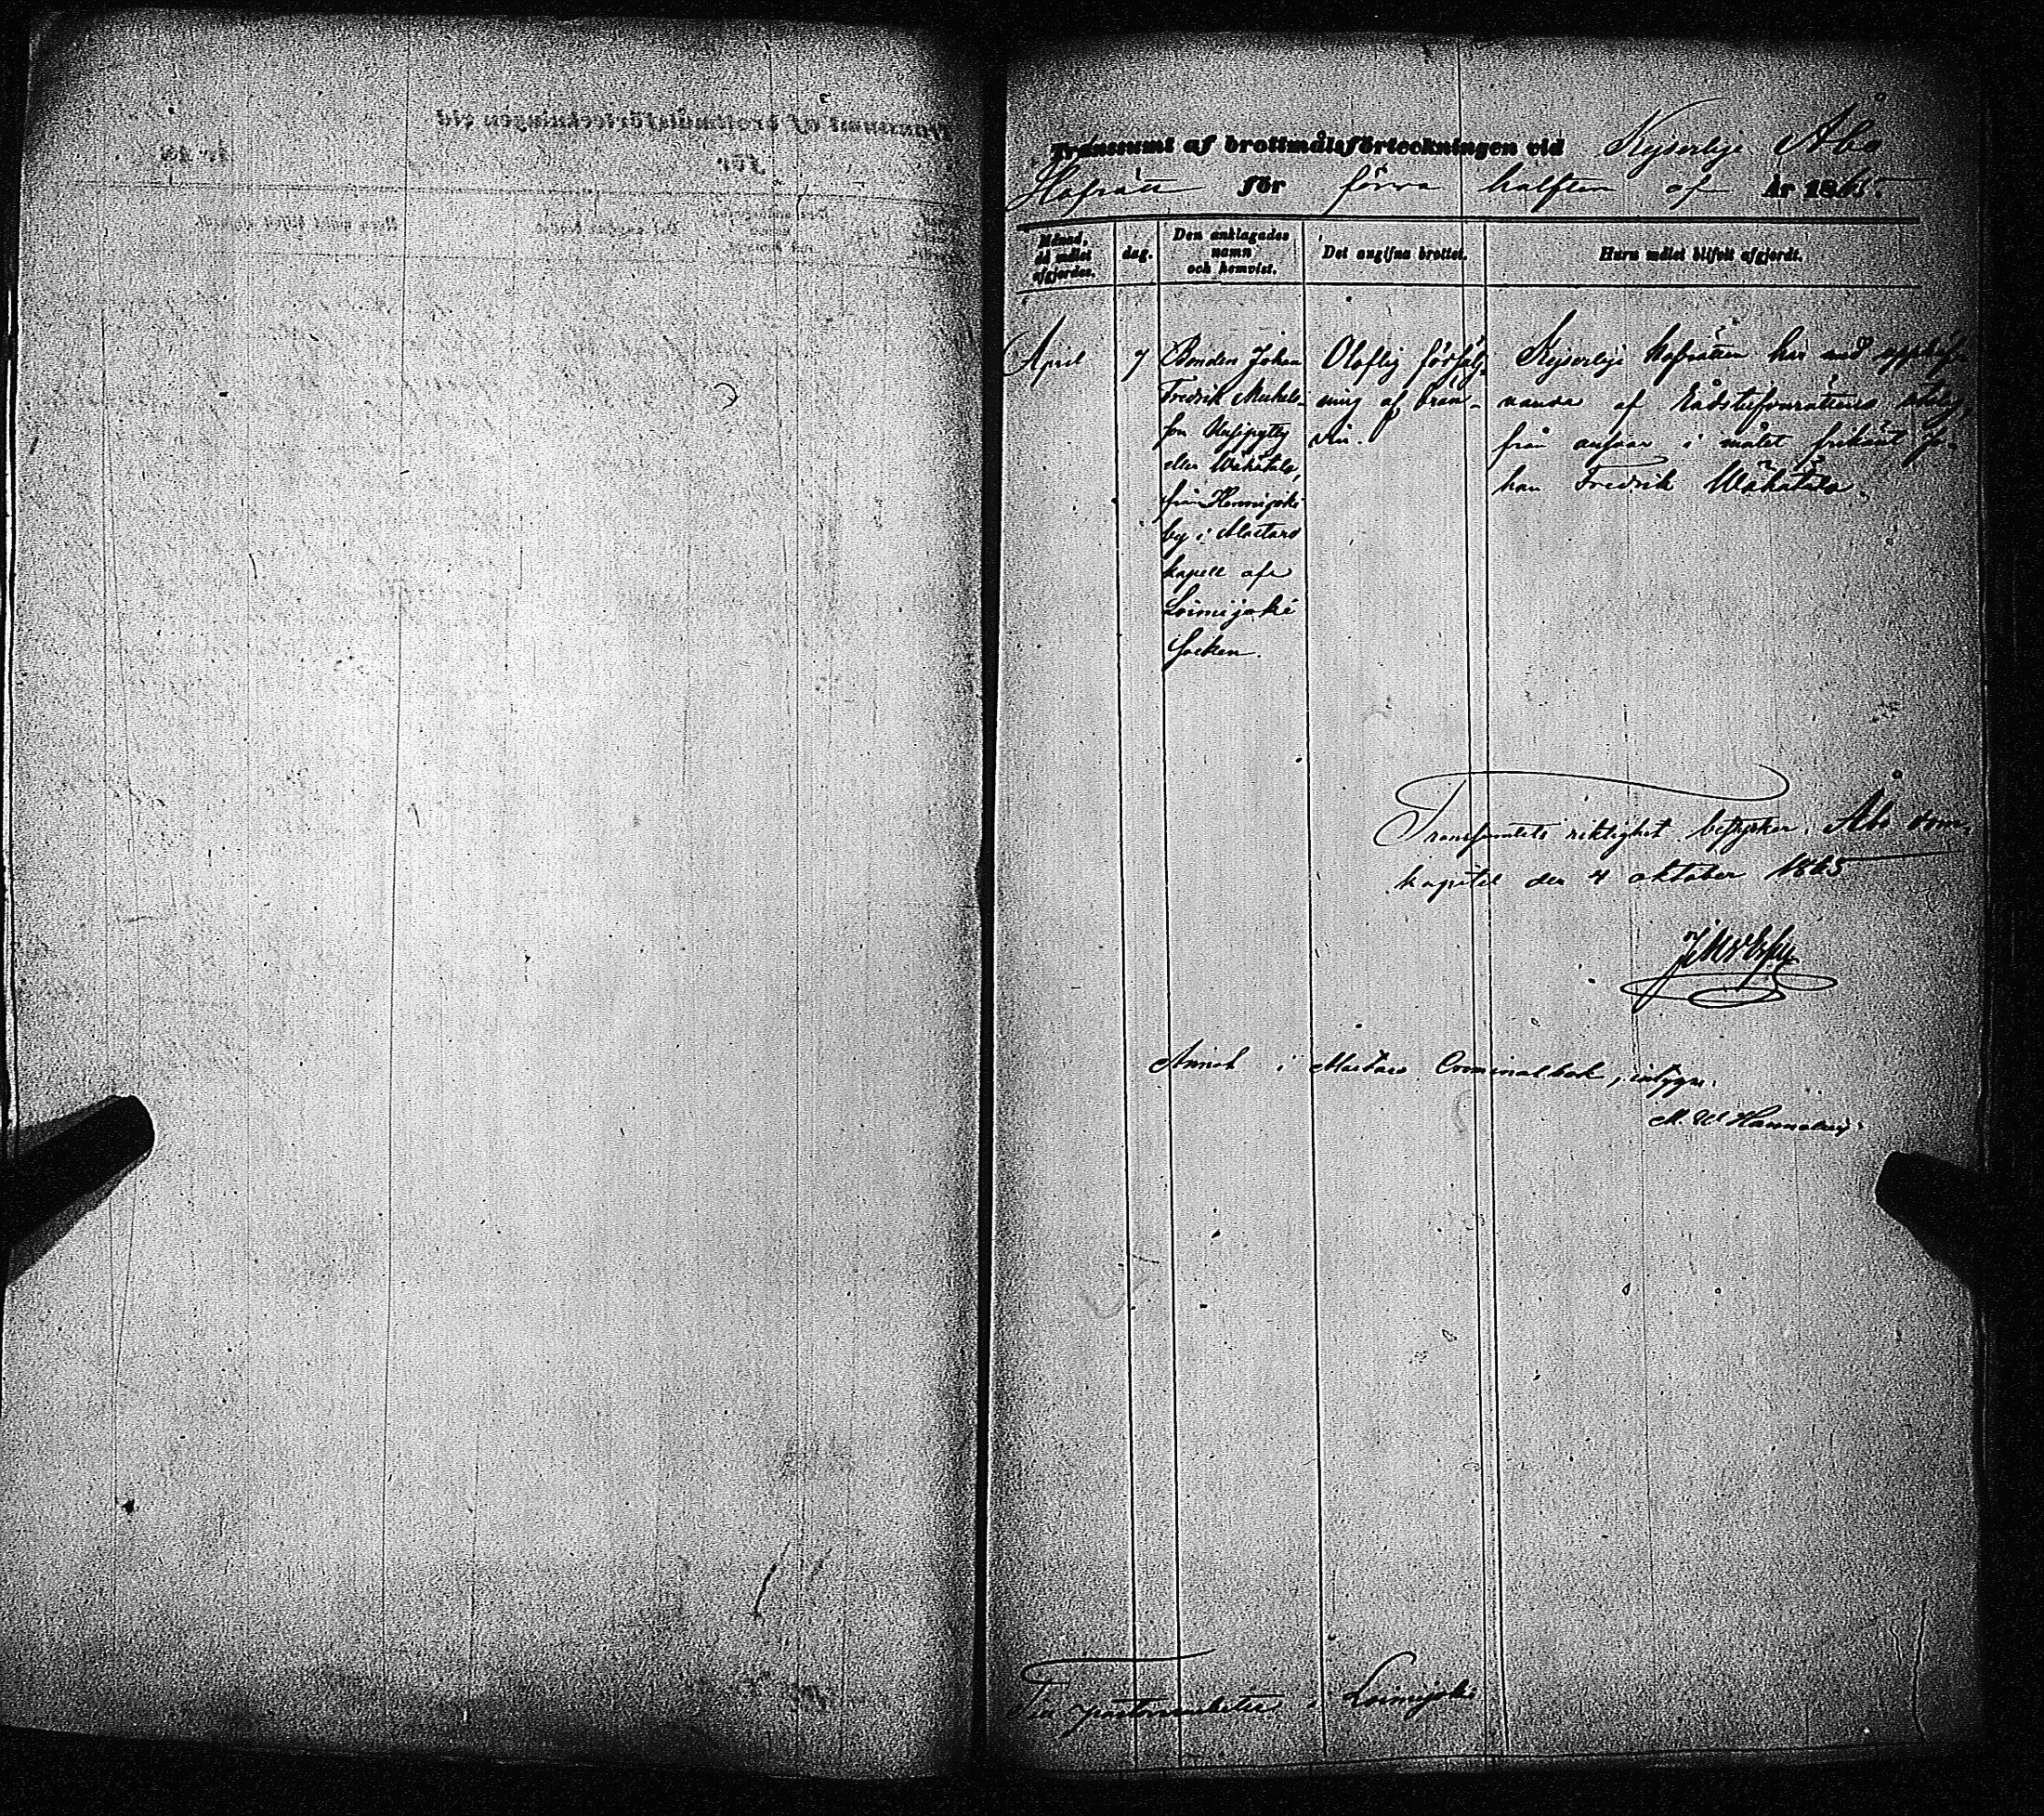 Transsumt af brottmålsförteckningen vid Kejserlige Åbo
Hofrätt för förra hälften af år 1865.
Månad, då målet afgjordes.
dag.
Den anklagades namn och hemvist.
Det angifna brottet.
Huru målet blifvit afgjordt.
April
7
Bonden Johan
Fredrik Mickels-
son
eller Wähätalo,
från
by i Mactaro
kapell af
Loimijoki
Socken.
Oloflig försälj-
ning af brän-
vin.
Kejserlige Hofrätten har med upphäf-
vande af Rådstufvurättens utslag,
från ansvar i målet frikänt Jo-
han Fredrik Wähätalo.
Transsumtets riktighet betygar. Åbo dom-
kapitel den 4 oktober 1865
Annot i Mactaro Criminalbok, intygar:
M. W. Hannelius
Till pastorsembetet i Loimijoki